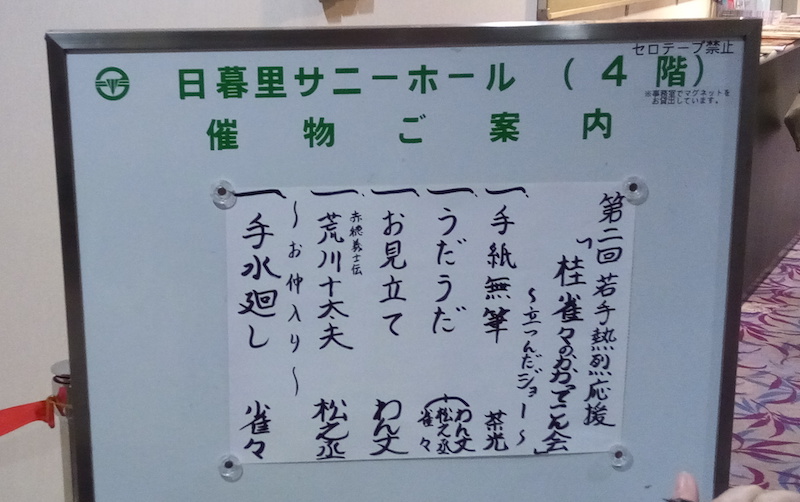 セロテープ禁止
日暮里サニーホール（４階）
※事務室でマグネットを
お貸出しています。
催物ご案内
第二回 若手熱烈応援
「桂雀々のかかってこん会」
〜立つんだジョー〜
一 手紙無筆 茶光
一 うだうだ （わん丈 松之丞 雀々
一 お見立て わん丈
一 赤穂義士伝 荒川十太夫 松之丞
〜お仲入り〜
一 手水廻し 雀々